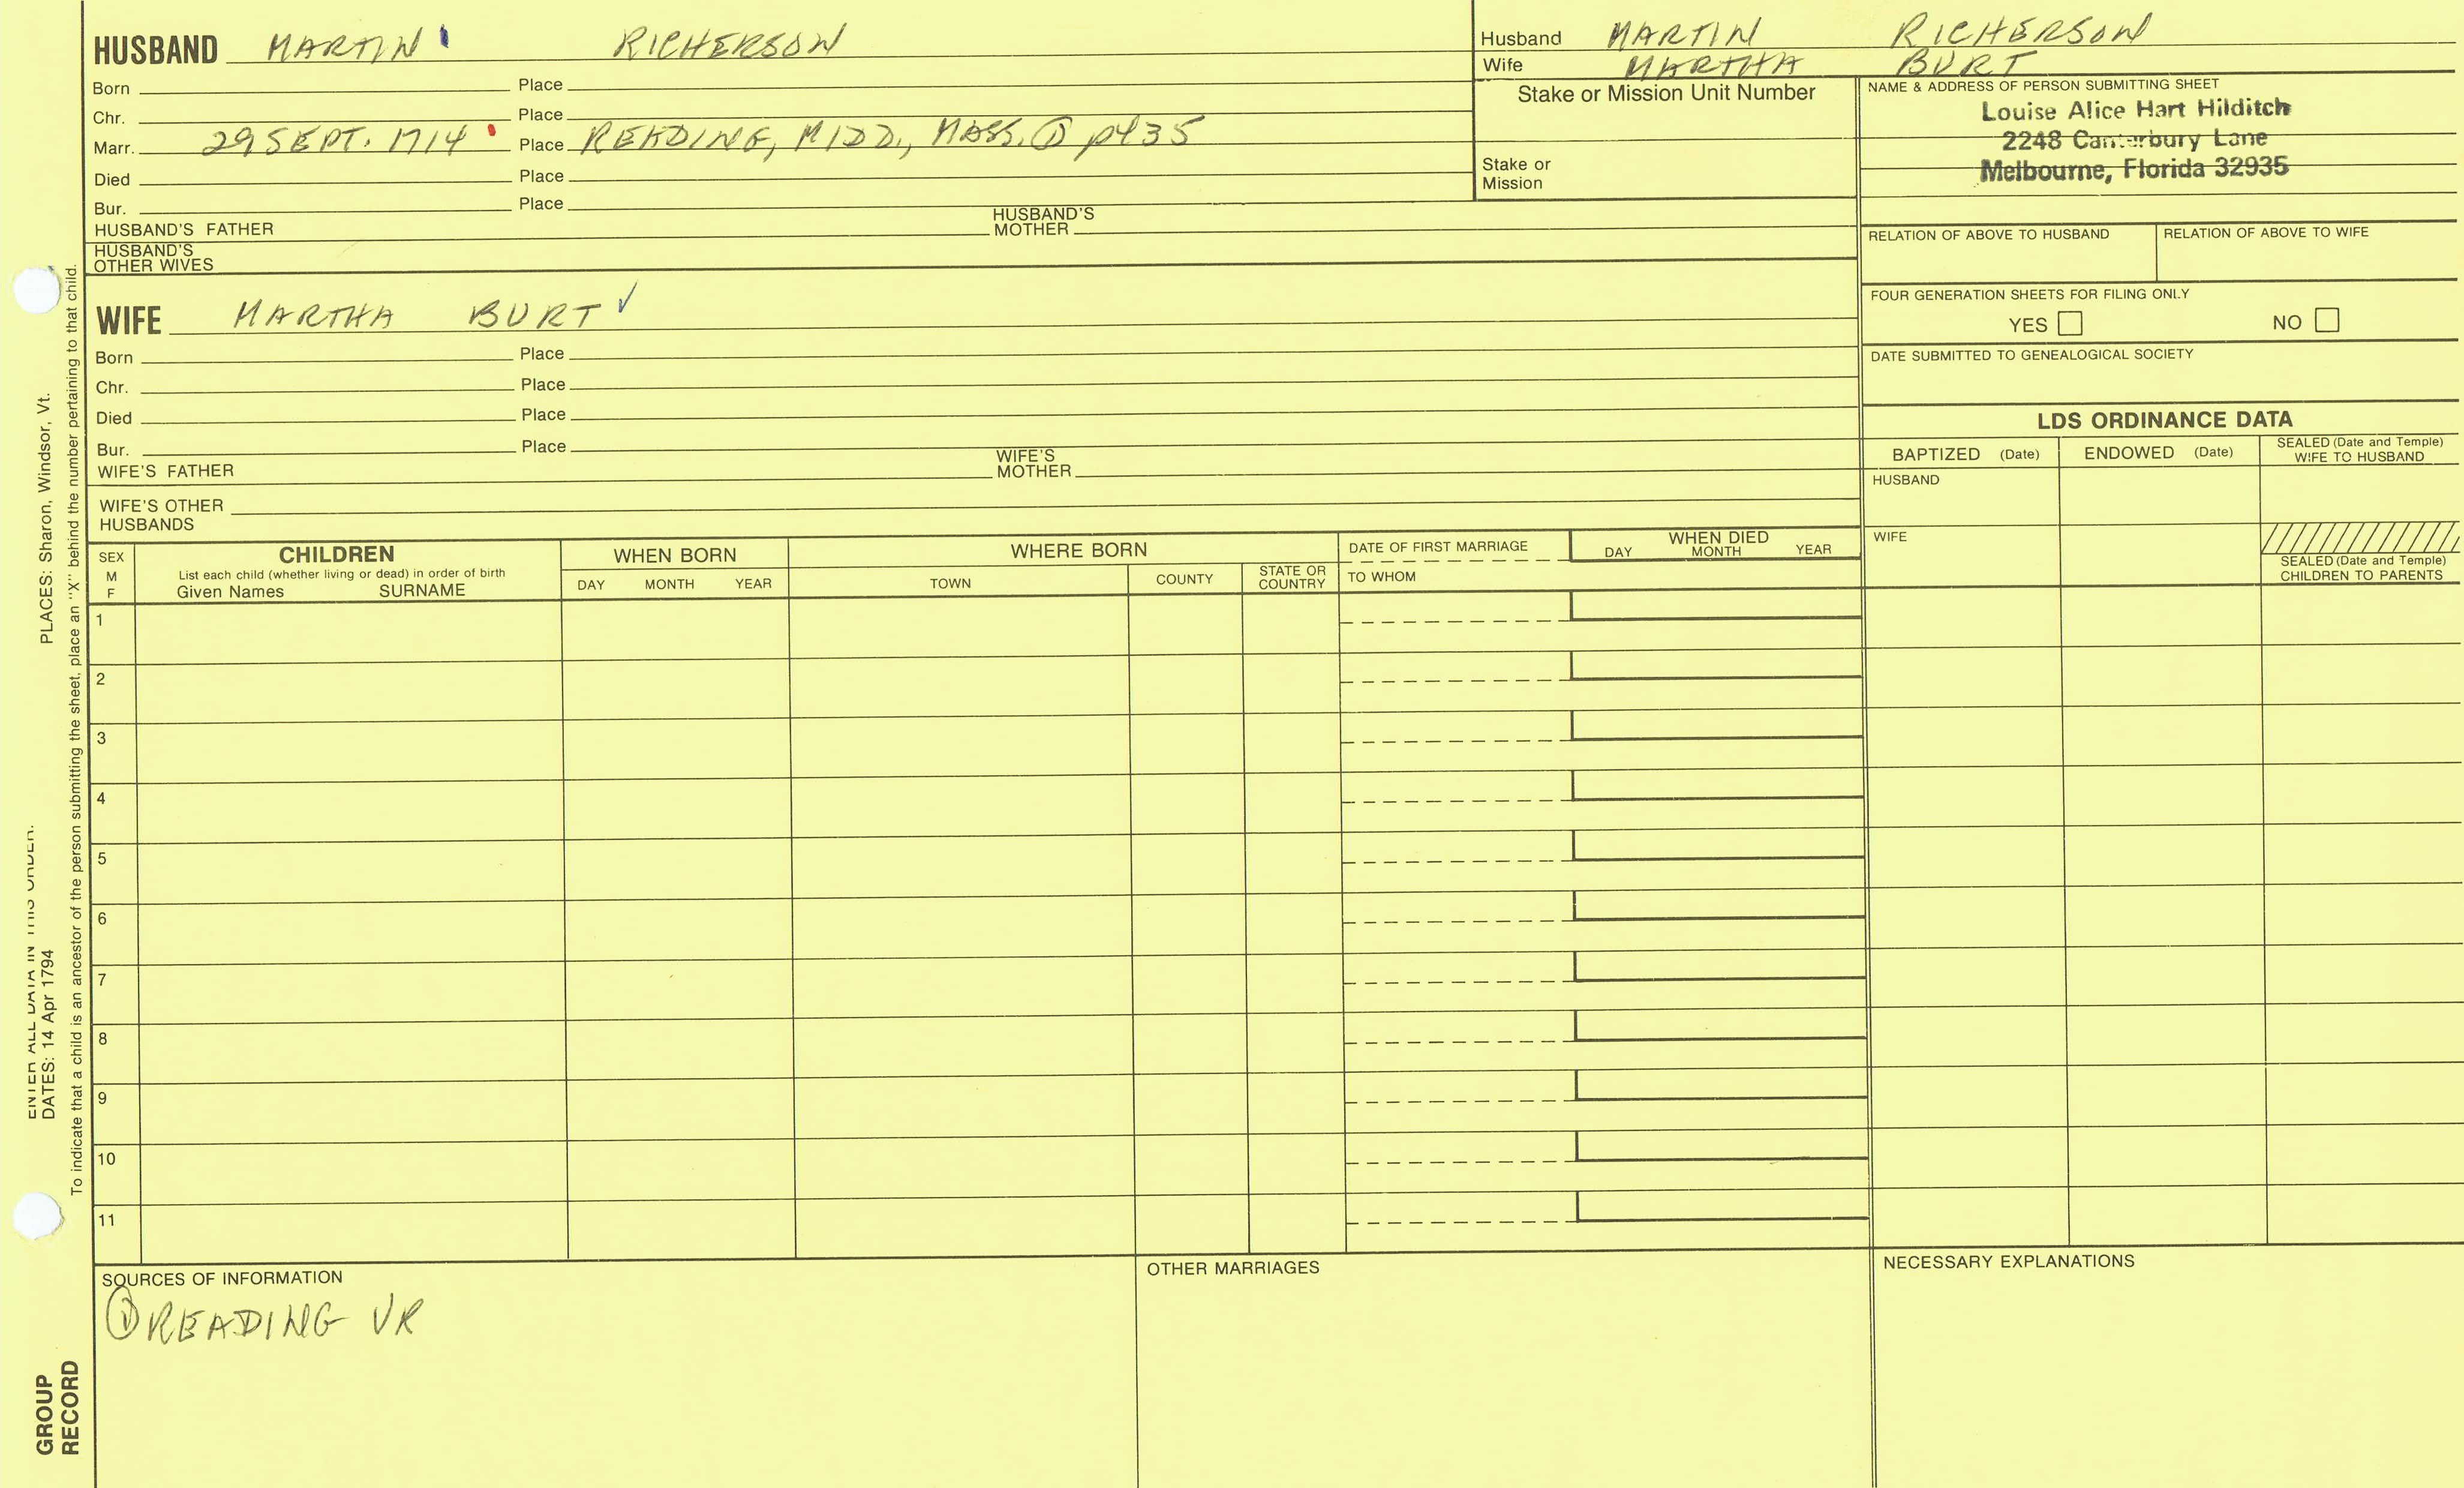 HUSBAND MARTIN RICHERSON
Born Place
Chr. Place
Marr. 29 SEPT. 1714 Place READING, MIDD., MASS. ① p435
Died Place
Bur. Place
HUSBAND'S FATHER HUSBAND'S MOTHER
HUSBAND'S OTHER WIVES
Husband MARTIN RICHERSON
Wife MARTHA BURT
Stake or Mission Unit Number
Stake or Mission
NAME & ADDRESS OF PERSON SUBMITTING SHEET
Louise Alice Hart Hilditch
2248 Canterbury Lane
Melbourne, Florida 32935
RELATION OF ABOVE TO HUSBAND RELATION OF ABOVE TO WIFE
FOUR GENERATION SHEETS FOR FILING ONLY
YES NO
DATE SUBMITTED TO GENEALOGICAL SOCIETY
WIFE MARTHA BURT ✓
Born Place
Chr. Place
Died Place
Bur. Place
WIFE'S FATHER WIFE'S MOTHER
WIFE'S OTHER HUSBANDS
LDS ORDINANCE DATA
BAPTIZED (Date) ENDOWED (Date) SEALED (Date and Temple) WIFE TO HUSBAND
HUSBAND
WIFE
SEALED (Date and Temple) CHILDREN TO PARENTS
SEX M F
CHILDREN
List each child (whether living or dead) in order of birth
Given Names SURNAME
WHEN BORN
DAY MONTH YEAR
WHERE BORN
TOWN COUNTY STATE OR COUNTRY
DATE OF FIRST MARRIAGE
TO WHOM
WHEN DIED
DAY MONTH YEAR
1
2
3
4
5
6
7
8
9
10
11
SOURCES OF INFORMATION
① READING VR
OTHER MARRIAGES
NECESSARY EXPLANATIONS
ENTER ALL DATA IN THIS ORDER.
DATES: 14 Apr 1794 PLACES: Sharon, Windsor, Vt.
To indicate that a child is an ancestor of the person submitting the sheet, place an "X" behind the number pertaining to that child.
GROUP
RECORD